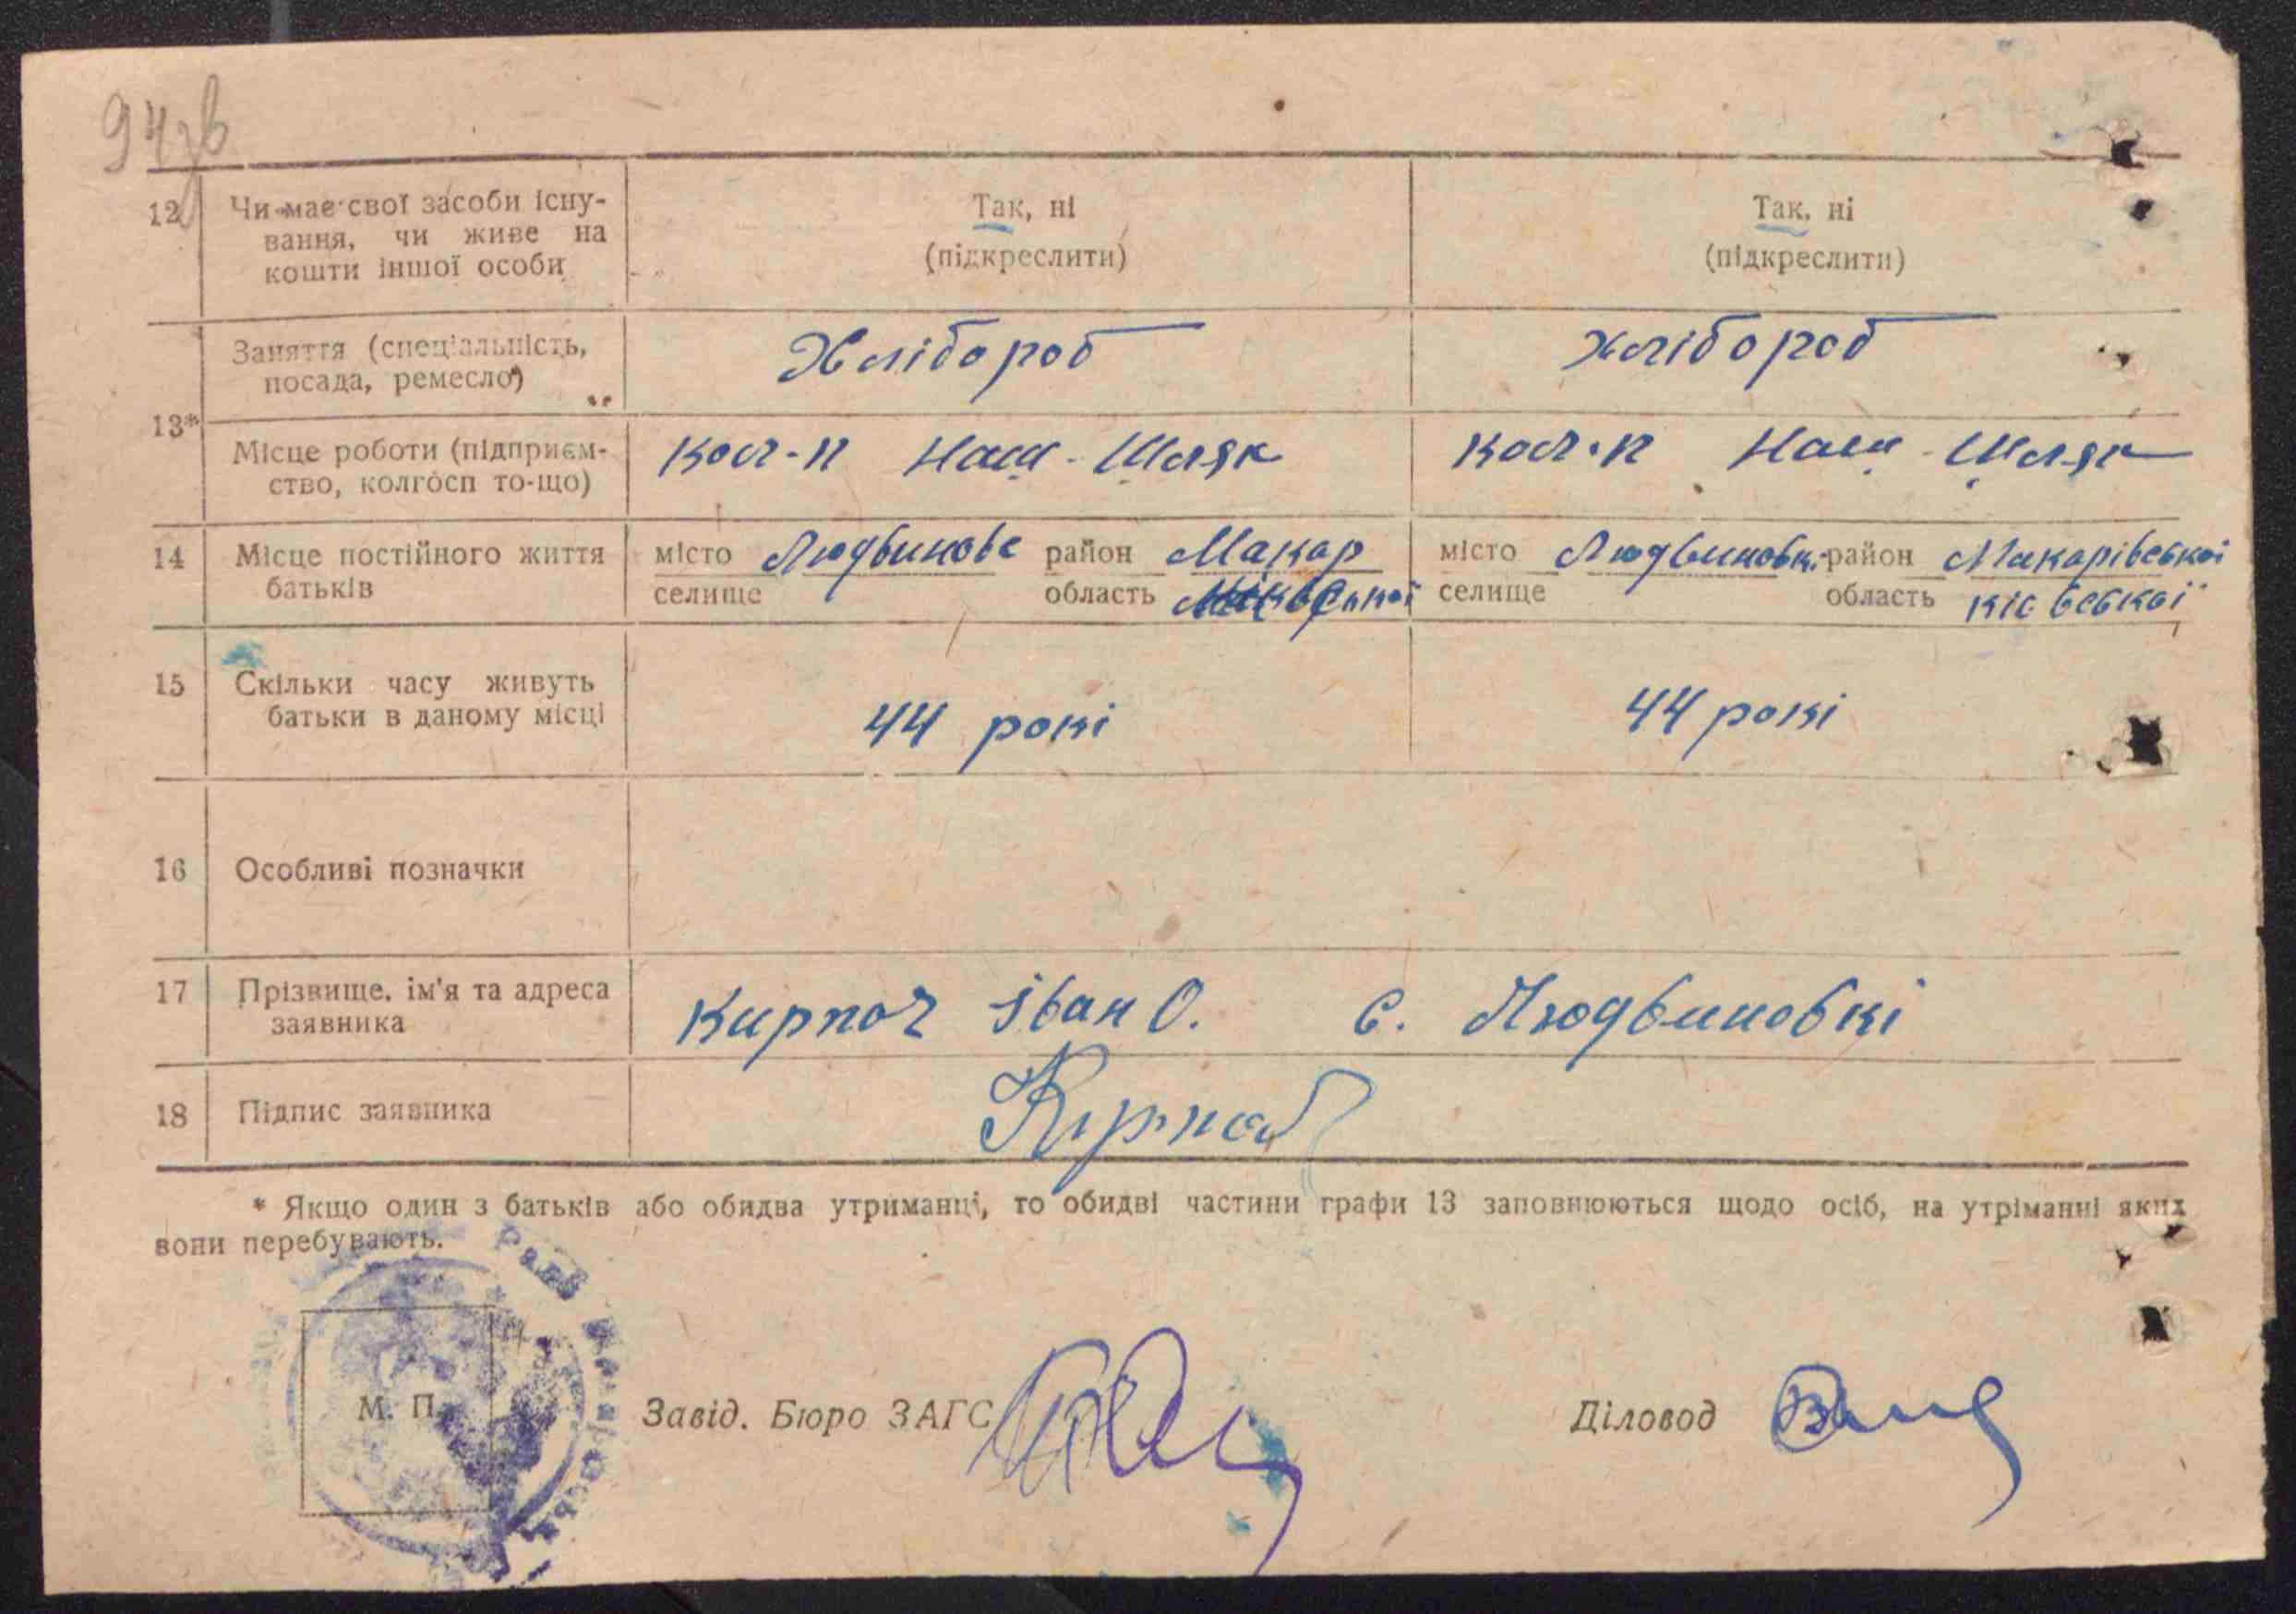 94зв
12 Чи має свої засоби існу- Так, ні Так, ні
вання, чи живе на (підкреслити) (підкреслити)
кошти іншої особи
Заняття (спеціальність, Хлібороб хлібороб
посада, ремесло)
13*
Місце роботи (підприєм- Кол-п Наш-Шляк Кол-п Наш-Шляк
ство, колгосп то-що)
14 Місце постійного життя місто Людвинове район Макар місто Людвиновк. район Макарівської
батьків селище область селище область Київської
15 Скільки часу живуть 44 рокі 44 рокі
батьки в даному місці
16 Особливі позначки
17 Прізвище, ім'я та адреса Кирпоч Іван О. с. Людвиновкі
заявника
18 Підпис заявника
* Якщо один з батьків або обидва утриманці, то обидві частини графи 13 заповнюються щодо осіб, на утріманні яких
вони перебувають.
М. П. Завід. Бюро ЗАГС Діловод